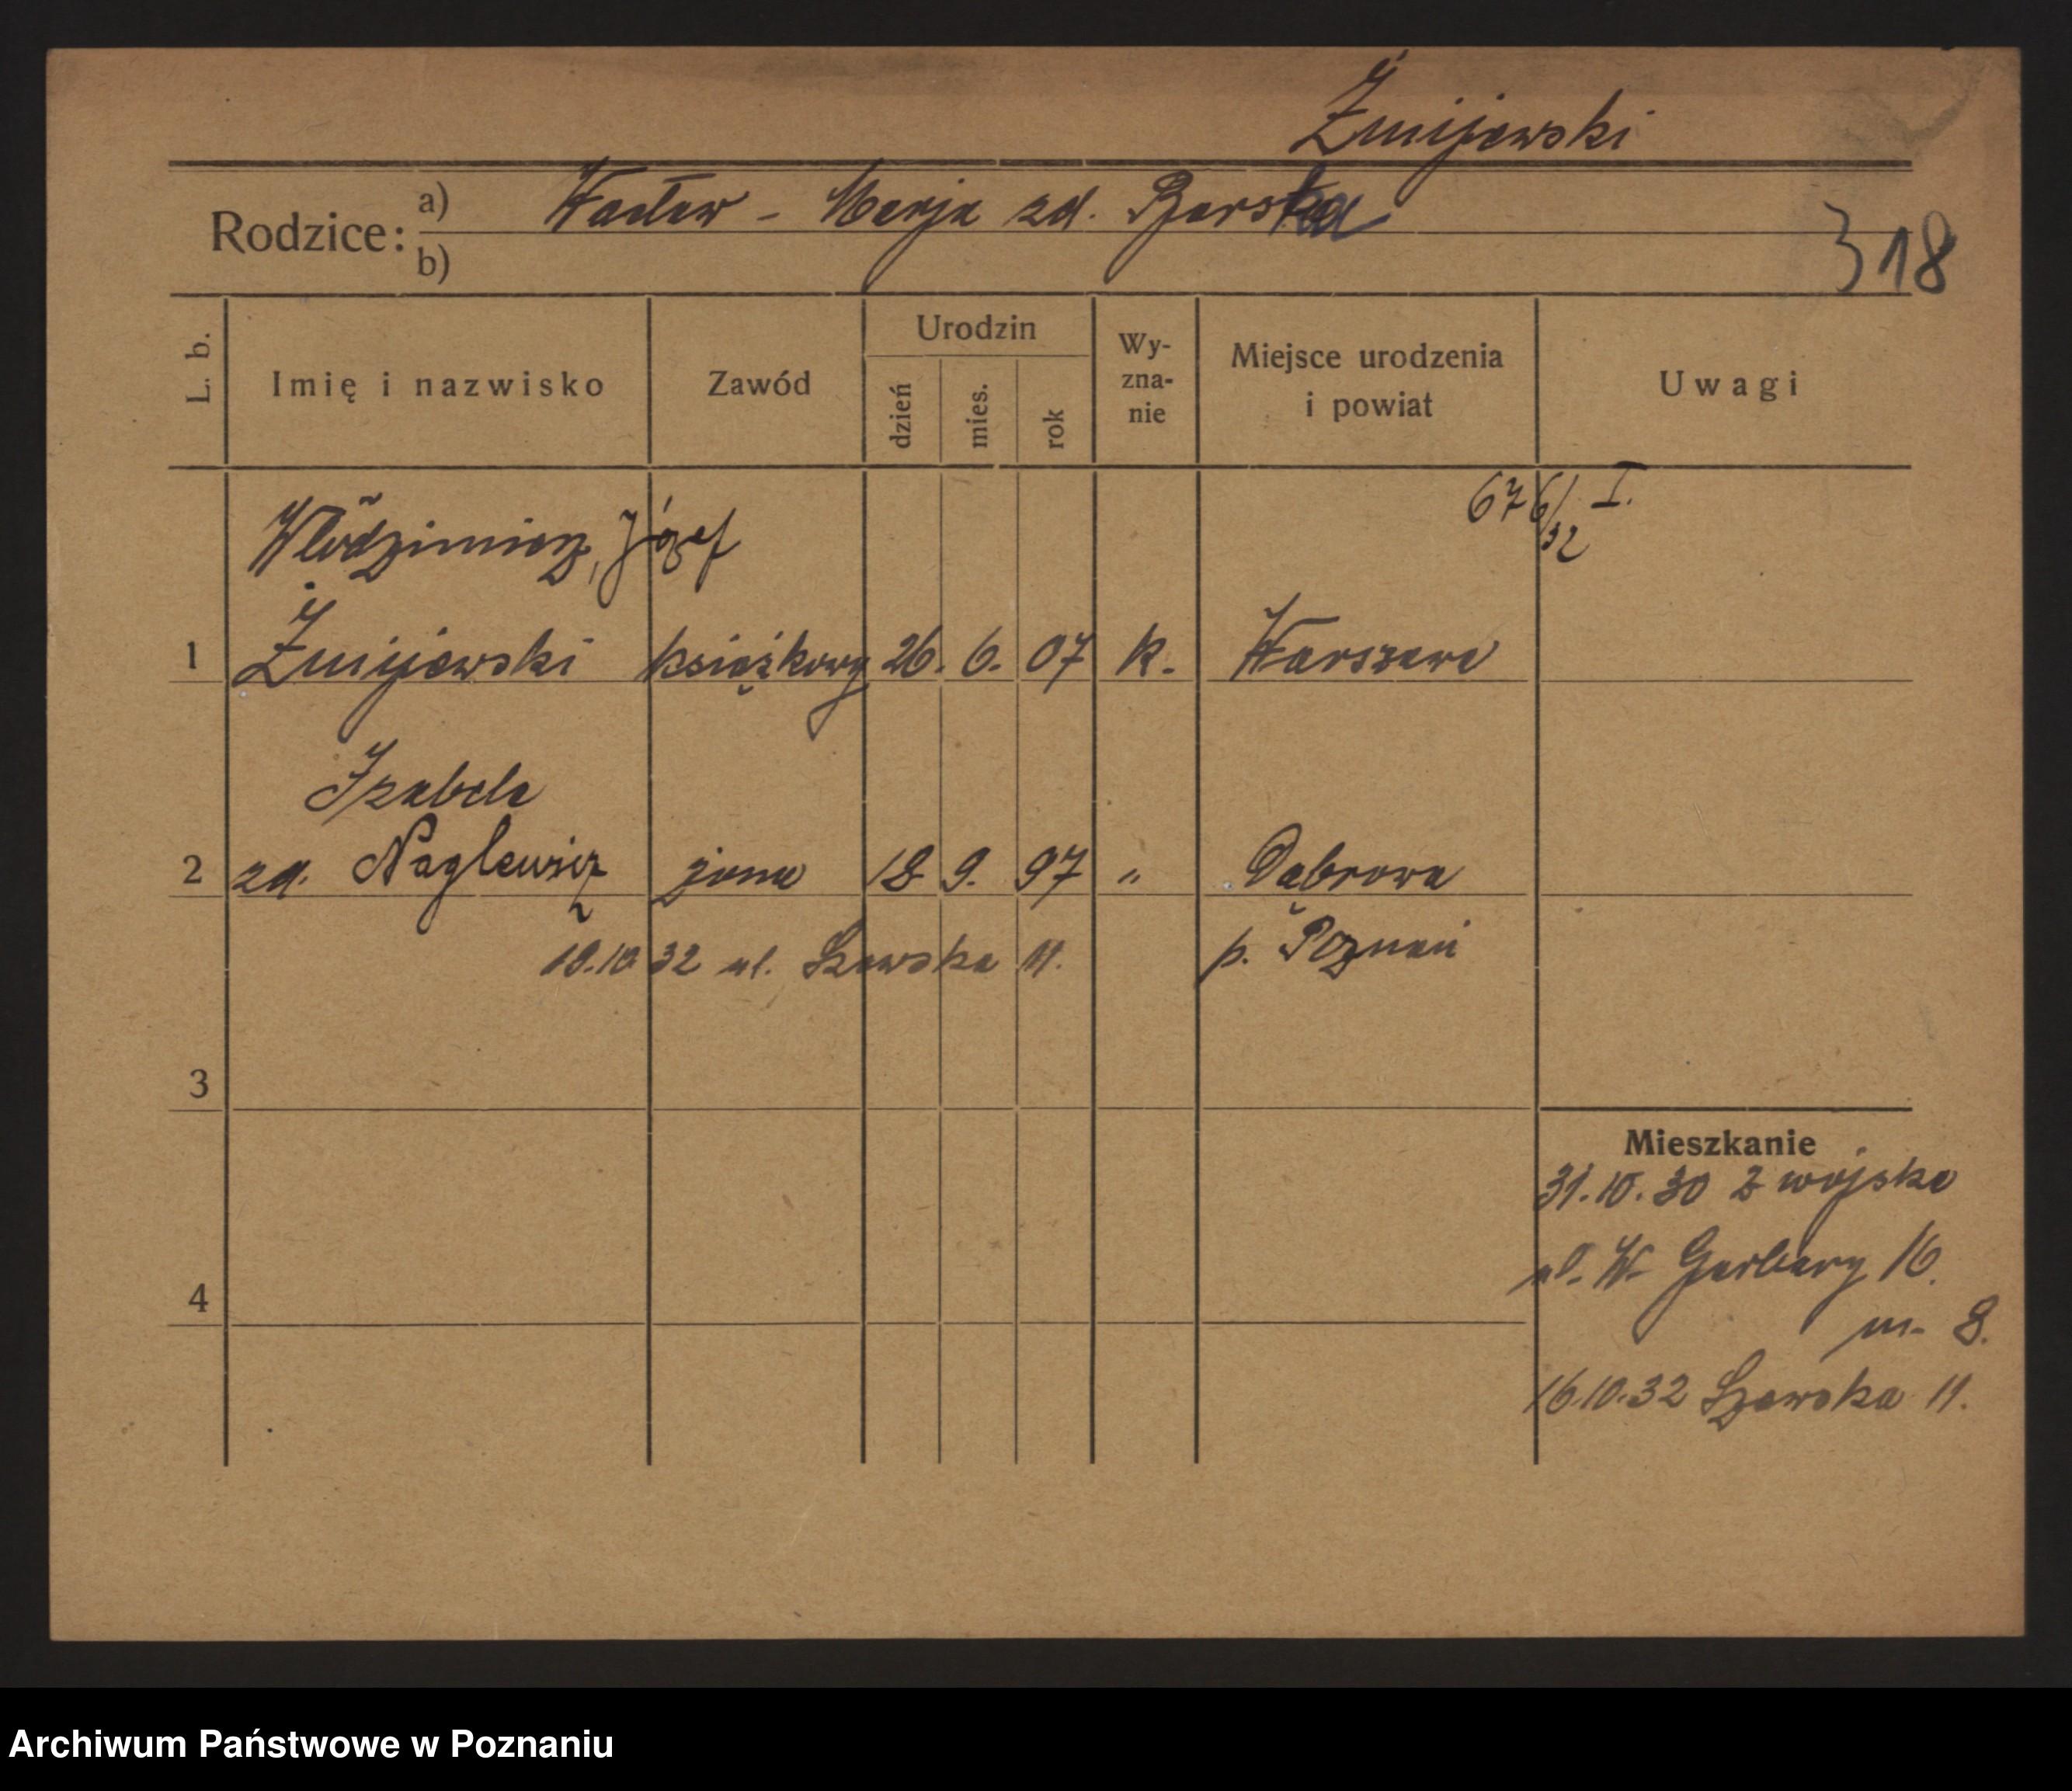 Żmijewski
Rodzice: a) Wacław - Marja zd. Barska
b)
318
L. b. Imię i nazwisko Zawód Urodzin dzień mies. rok Wy-zna-nie Miejsce urodzenia i powiat Uwagi
676/32 I.
Włodzimierz, Józef
1 Żmijewski książkowy 26. 6. 07 k. Warszawa
Izabela
2 zd. Naglewicz żona 18 9. 97 " Dąbrowa
10.10 32 ul. Szewska 11. p. Poznań
3
Mieszkanie
31.10.30 z wojska
ul. W. Garbary 16.
4
m. 8.
16.10.32 Szewska 11.
Archiwum Państwowe w Poznaniu